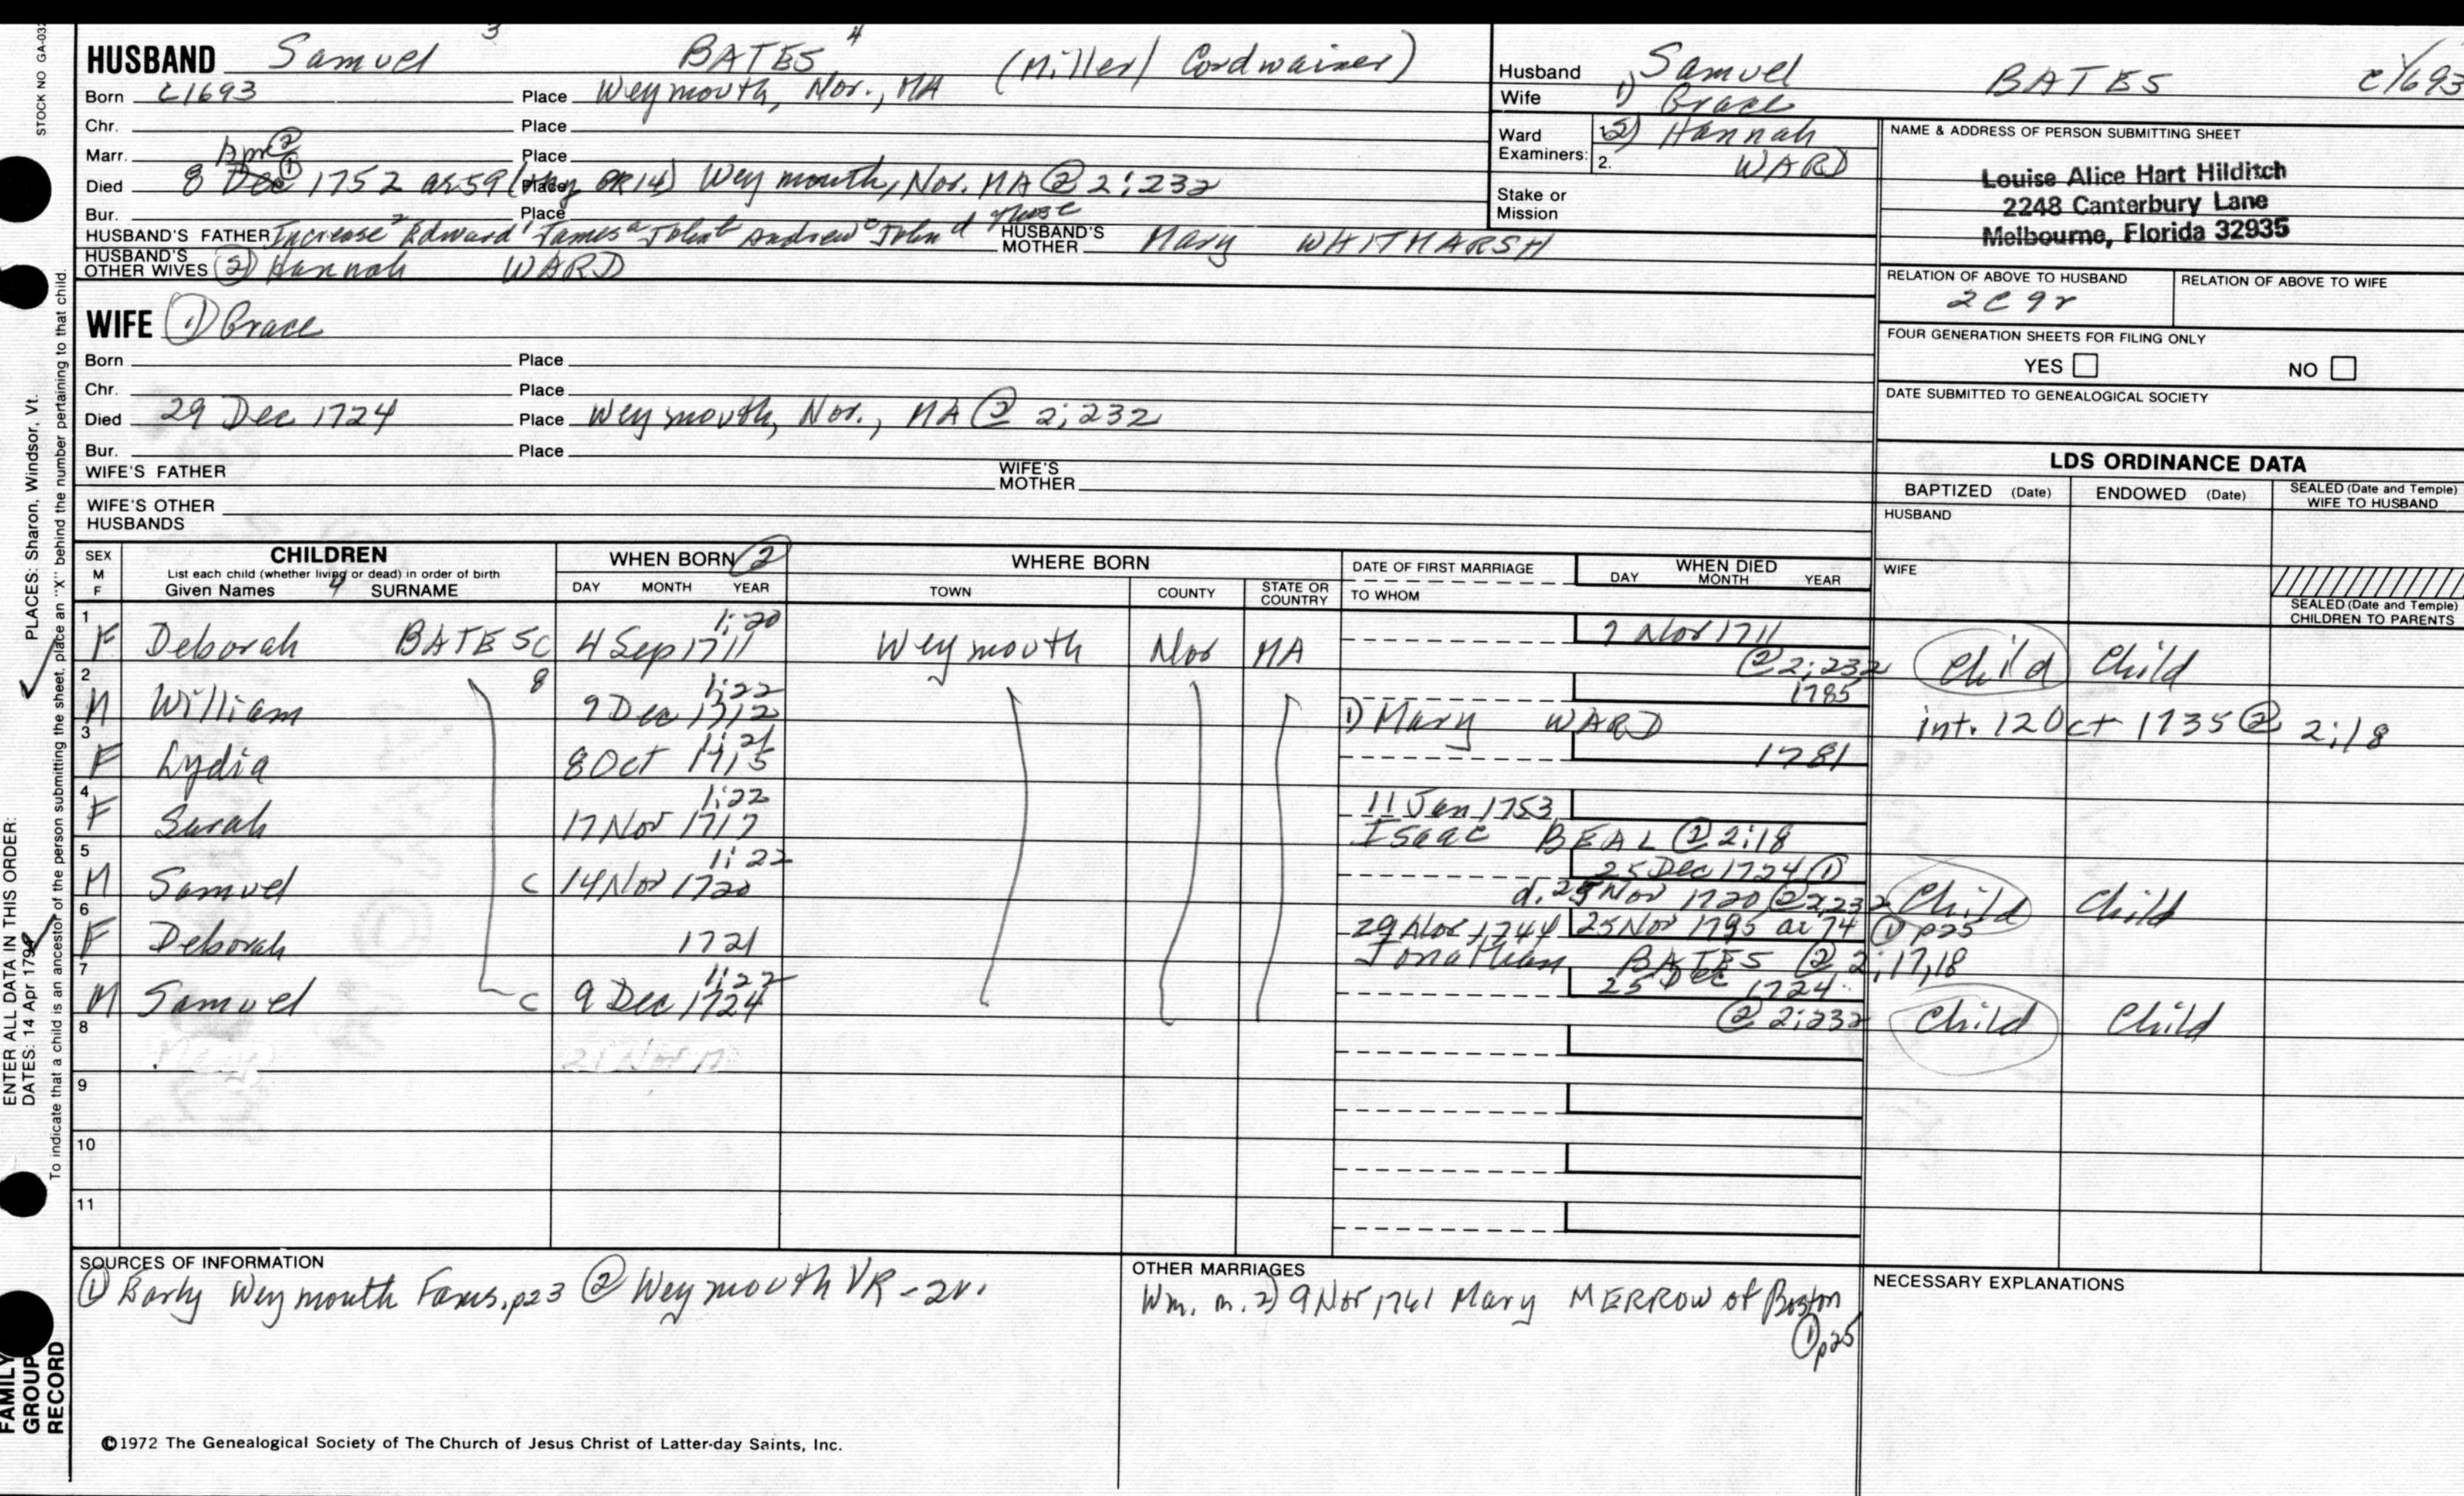 STOCK NO GA-03
HUSBAND Samuel 3 BATES 4 (Miller/ Cordwainer)
Born c1693 Place Weymouth, Nor., MA
Chr. Place
Marr. Place
Died 8 Dec 1752 ae 59 Place Weymouth, Nor. MA ② 2:232
Bur. Place
HUSBAND'S FATHER Increase 2 Edward 1 James a John b Andrew c John d HUSBAND'S MOTHER Mary WHITMARSH
HUSBAND'S OTHER WIVES (2) Hannah WARD
WIFE 1) Grace
Born Place
Chr. Place
Died 29 Dec 1724 Place Weymouth, Nor., MA ② 2:232
Bur. Place
WIFE'S FATHER WIFE'S MOTHER
WIFE'S OTHER HUSBANDS
Husband Samuel BATES c1693
Wife 1) Grace
Ward Examiners: 1. 2) Hannah
2. WARD
Stake or Mission
NAME & ADDRESS OF PERSON SUBMITTING SHEET
Louise Alice Hart Hilditch
2248 Canterbury Lane
Melbourne, Florida 32935
RELATION OF ABOVE TO HUSBAND RELATION OF ABOVE TO WIFE
2C9r
FOUR GENERATION SHEETS FOR FILING ONLY
YES NO
DATE SUBMITTED TO GENEALOGICAL SOCIETY
LDS ORDINANCE DATA
BAPTIZED (Date) ENDOWED (Date) SEALED (Date and Temple) WIFE TO HUSBAND
HUSBAND
WIFE
SEALED (Date and Temple) CHILDREN TO PARENTS
SEX M F CHILDREN WHEN BORN ② WHERE BORN DATE OF FIRST MARRIAGE WHEN DIED
List each child (whether living or dead) in order of birth
Given Names SURNAME DAY MONTH YEAR TOWN COUNTY STATE OR COUNTRY TO WHOM DAY MONTH YEAR
1 F Deborah BATES C 4 Sep 1711 1:20 Weymouth Nor MA 7 Nov 1711 ② 2:232 Child Child
2 M William 9 Dec 1712 1:22 1785 1) Mary WARD int. 12 Oct 1735 ② 2:18
3 F Lydia 8 Oct 1715 1:21 1781
4 F Sarah 17 Nov 1717 1:22 11 Jan 1753 Isaac BEAL ② 2:18
5 M Samuel C 14 Nov 1720 1:22 25 Dec 1724 ① d. 25 Nov 1720 ② 2:232 Child Child
6 F Deborah 1721 29 Nov 1744 25 Nov 1795 ae 74 ① p25 Jonathan BATES ② 2:17,18
7 M Samuel C 9 Dec 1724 1:22 25 Dec 1724 ② 2:232 Child Child
8 21 Nov
9
10
11
SOURCES OF INFORMATION
① Early Weymouth Fams. p23 ② Weymouth VR - 2v.
OTHER MARRIAGES
Wm. m. 2) 9 Nov 1761 Mary MERROW of Boston
① p25
NECESSARY EXPLANATIONS
©1972 The Genealogical Society of The Church of Jesus Christ of Latter-day Saints, Inc.
ENTER ALL DATA IN THIS ORDER: PLACES: Sharon, Windsor, Vt.
DATES: 14 Apr 1794
To indicate that a child is an ancestor of the person submitting the sheet, place an "X" behind the number pertaining to that child.
FAMILY GROUP RECORD